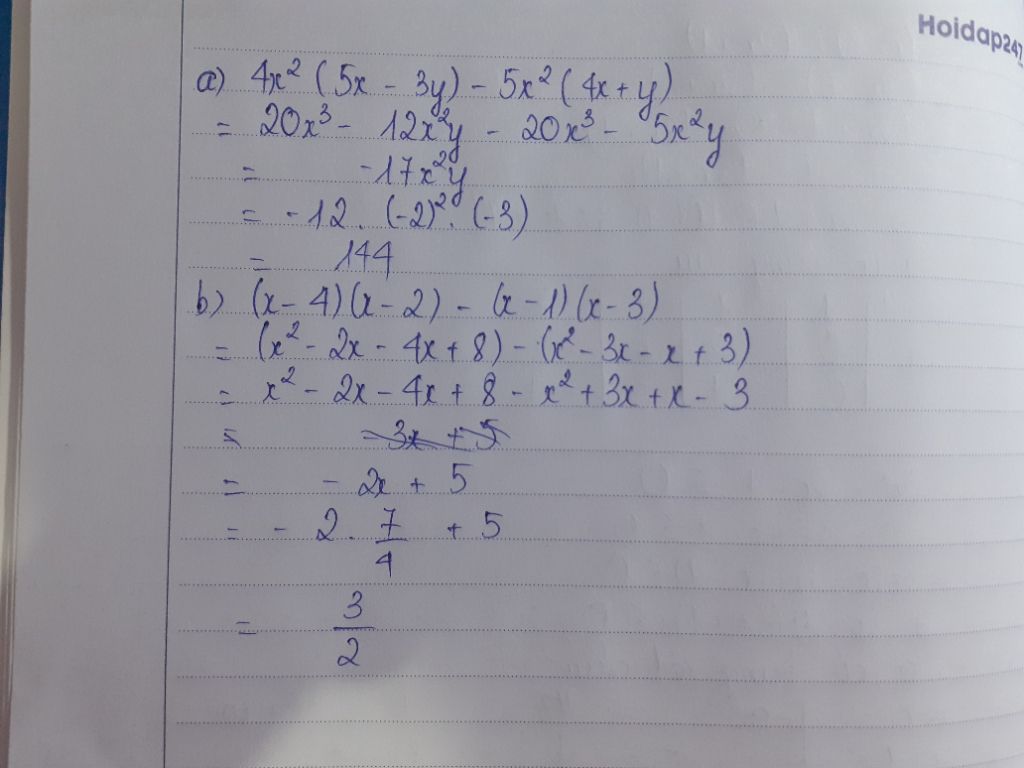 Hoidap247
a) 4x² (5x - 3y) - 5x² (4x + y)
= 20x³ - 12x²y - 20x³ - 5x²y
= -17x²y
= -12 . (-2)² . (-3)
= 144
b) (x - 4)(x - 2) - (x - 1)(x - 3)
= (x² - 2x - 4x + 8) - (x² - 3x - x + 3)
= x² - 2x - 4x + 8 - x² + 3x + x - 3
= -3x + 5
= - 2x + 5
= - 2 . 7/4 + 5
= 3/2